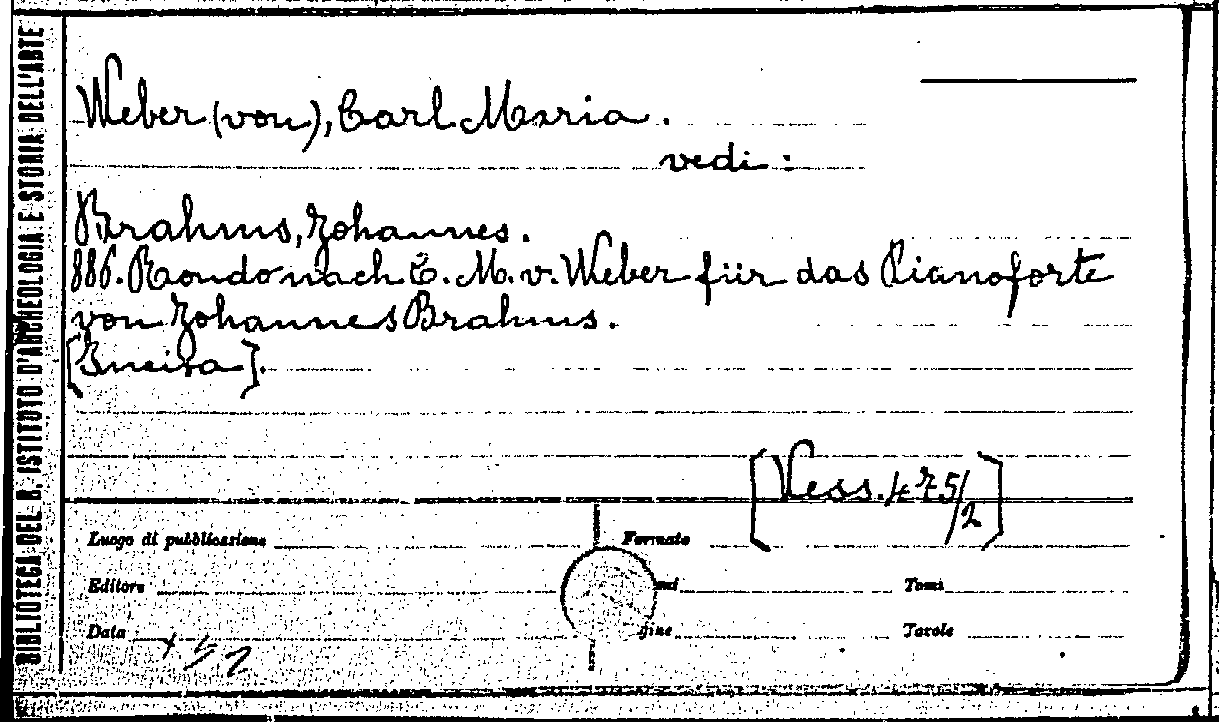 BIBLIOTECA DEL R. ISTITUTO D'ARCHEOLOGIA E STORIA DELL'ARTE
Weber (von), Carl Maria.
vedi:
Brahms, Johannes.
886. Rondo nach C. M. v. Weber für das Pianoforte
von Johannes Brahms.
[Vess. 475/2]
Luogo di pubblicazione
Formato
Editore
Tomi
Data
Tavole